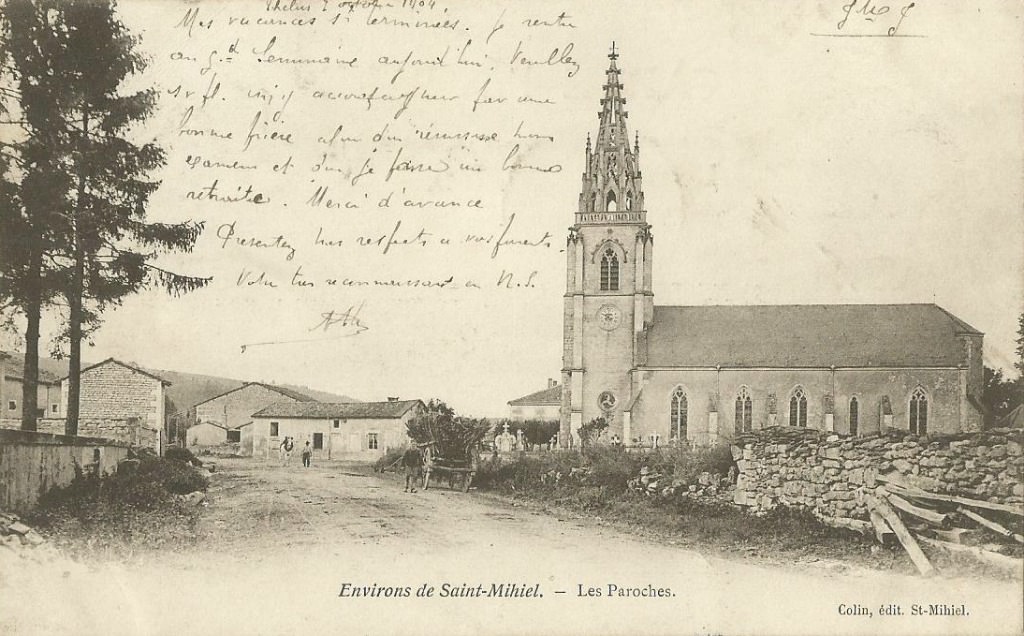 7 octobre 1904
Mes vacances st terminées. Je rentre
au gd Séminaire aujourd'hui. Veuillez
par une
bonne prière afin que réussisse mon
examen et que je fasse une bonne
retraite. Merci d'avance
Présentez mes respects à vos parents.
Votre très reconnaissant en N.S.
Environs de Saint-Mihiel. — Les Paroches.
Colin, édit. St-Mihiel.